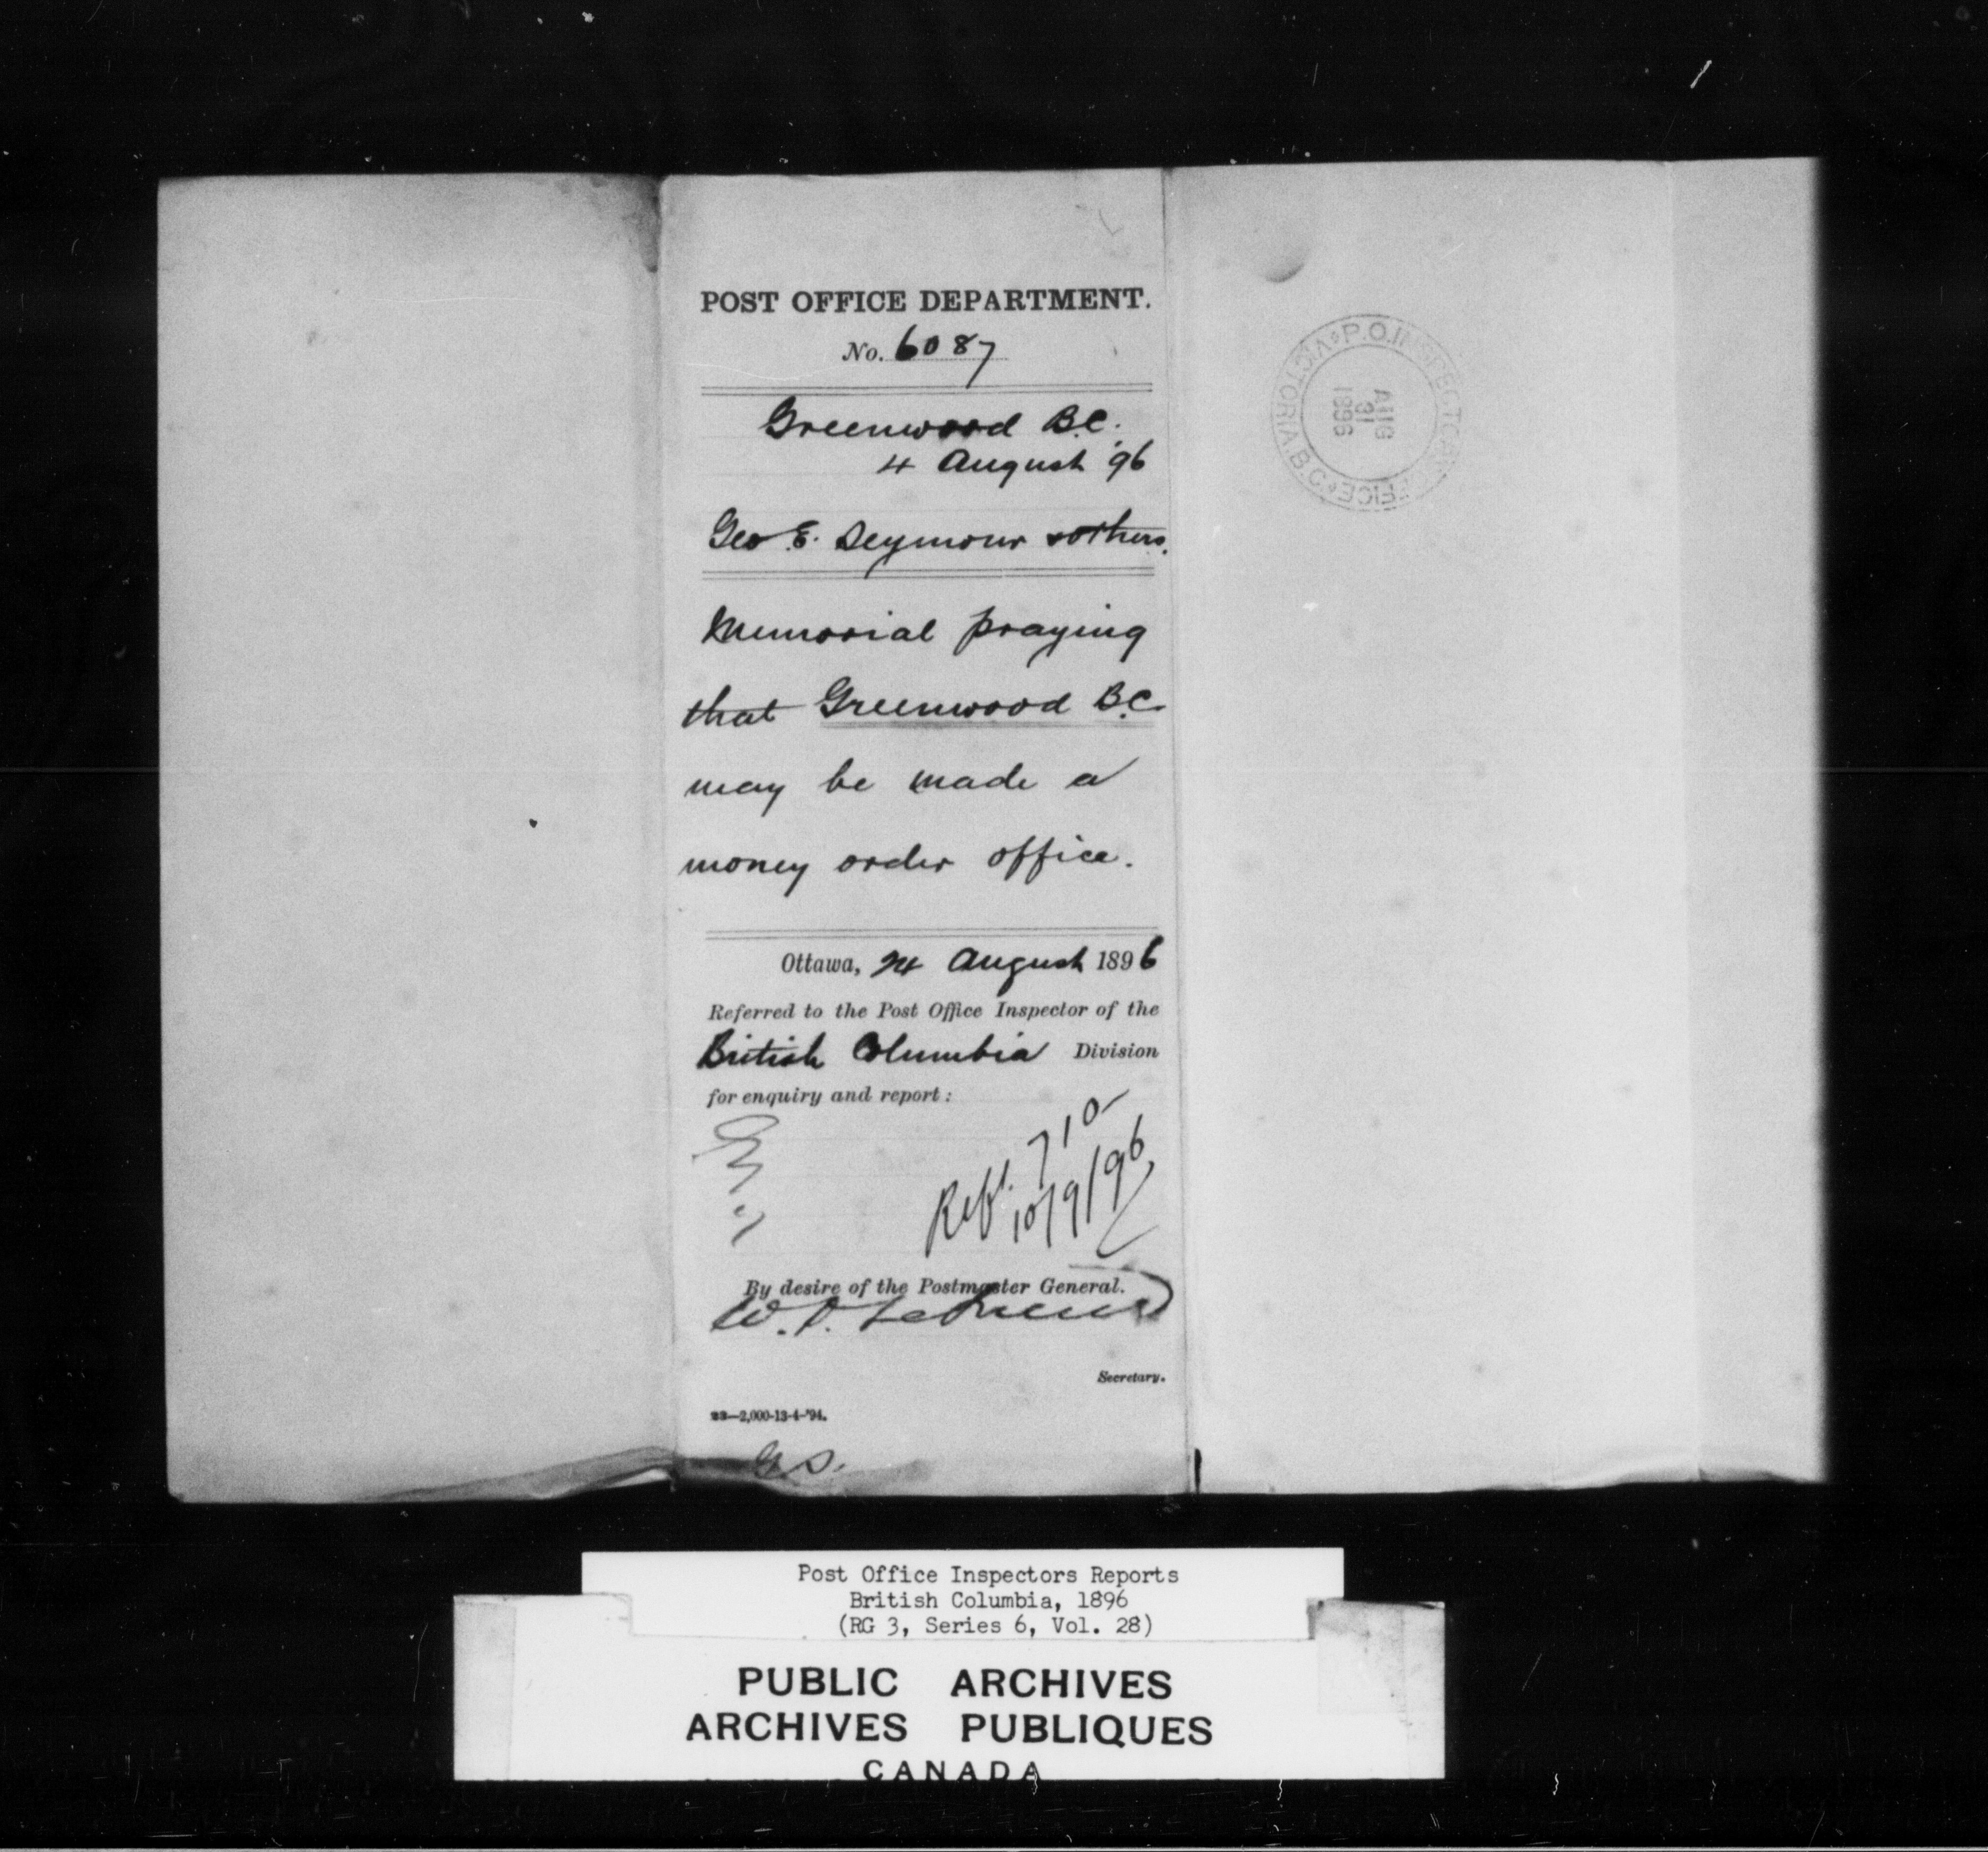 POST OFFICE DEPARTMENT.
No. 6087
Greenwood B.C.
4 August '96
Geo. E. Seymour & others.
Memorial praying
that Greenwood B.C.
may be made a
money order office.
Ottawa, 24 August 1896
Referred to the Post Office Inspector of the
British Columbia Division
for enquiry and report:
710
10/9/96
By desire of the Postmaster General.
W.
Secretary.
23—2,000-13-4-'94.
G.S.
P.O. INSPECTOR'S OFFICE VICTORIA. B.C.
AUG
31
1896
Post Office Inspectors Reports
British Columbia, 1896
(RG 3, Series 6, Vol. 28)
PUBLIC ARCHIVES
ARCHIVES PUBLIQUES
CANADA